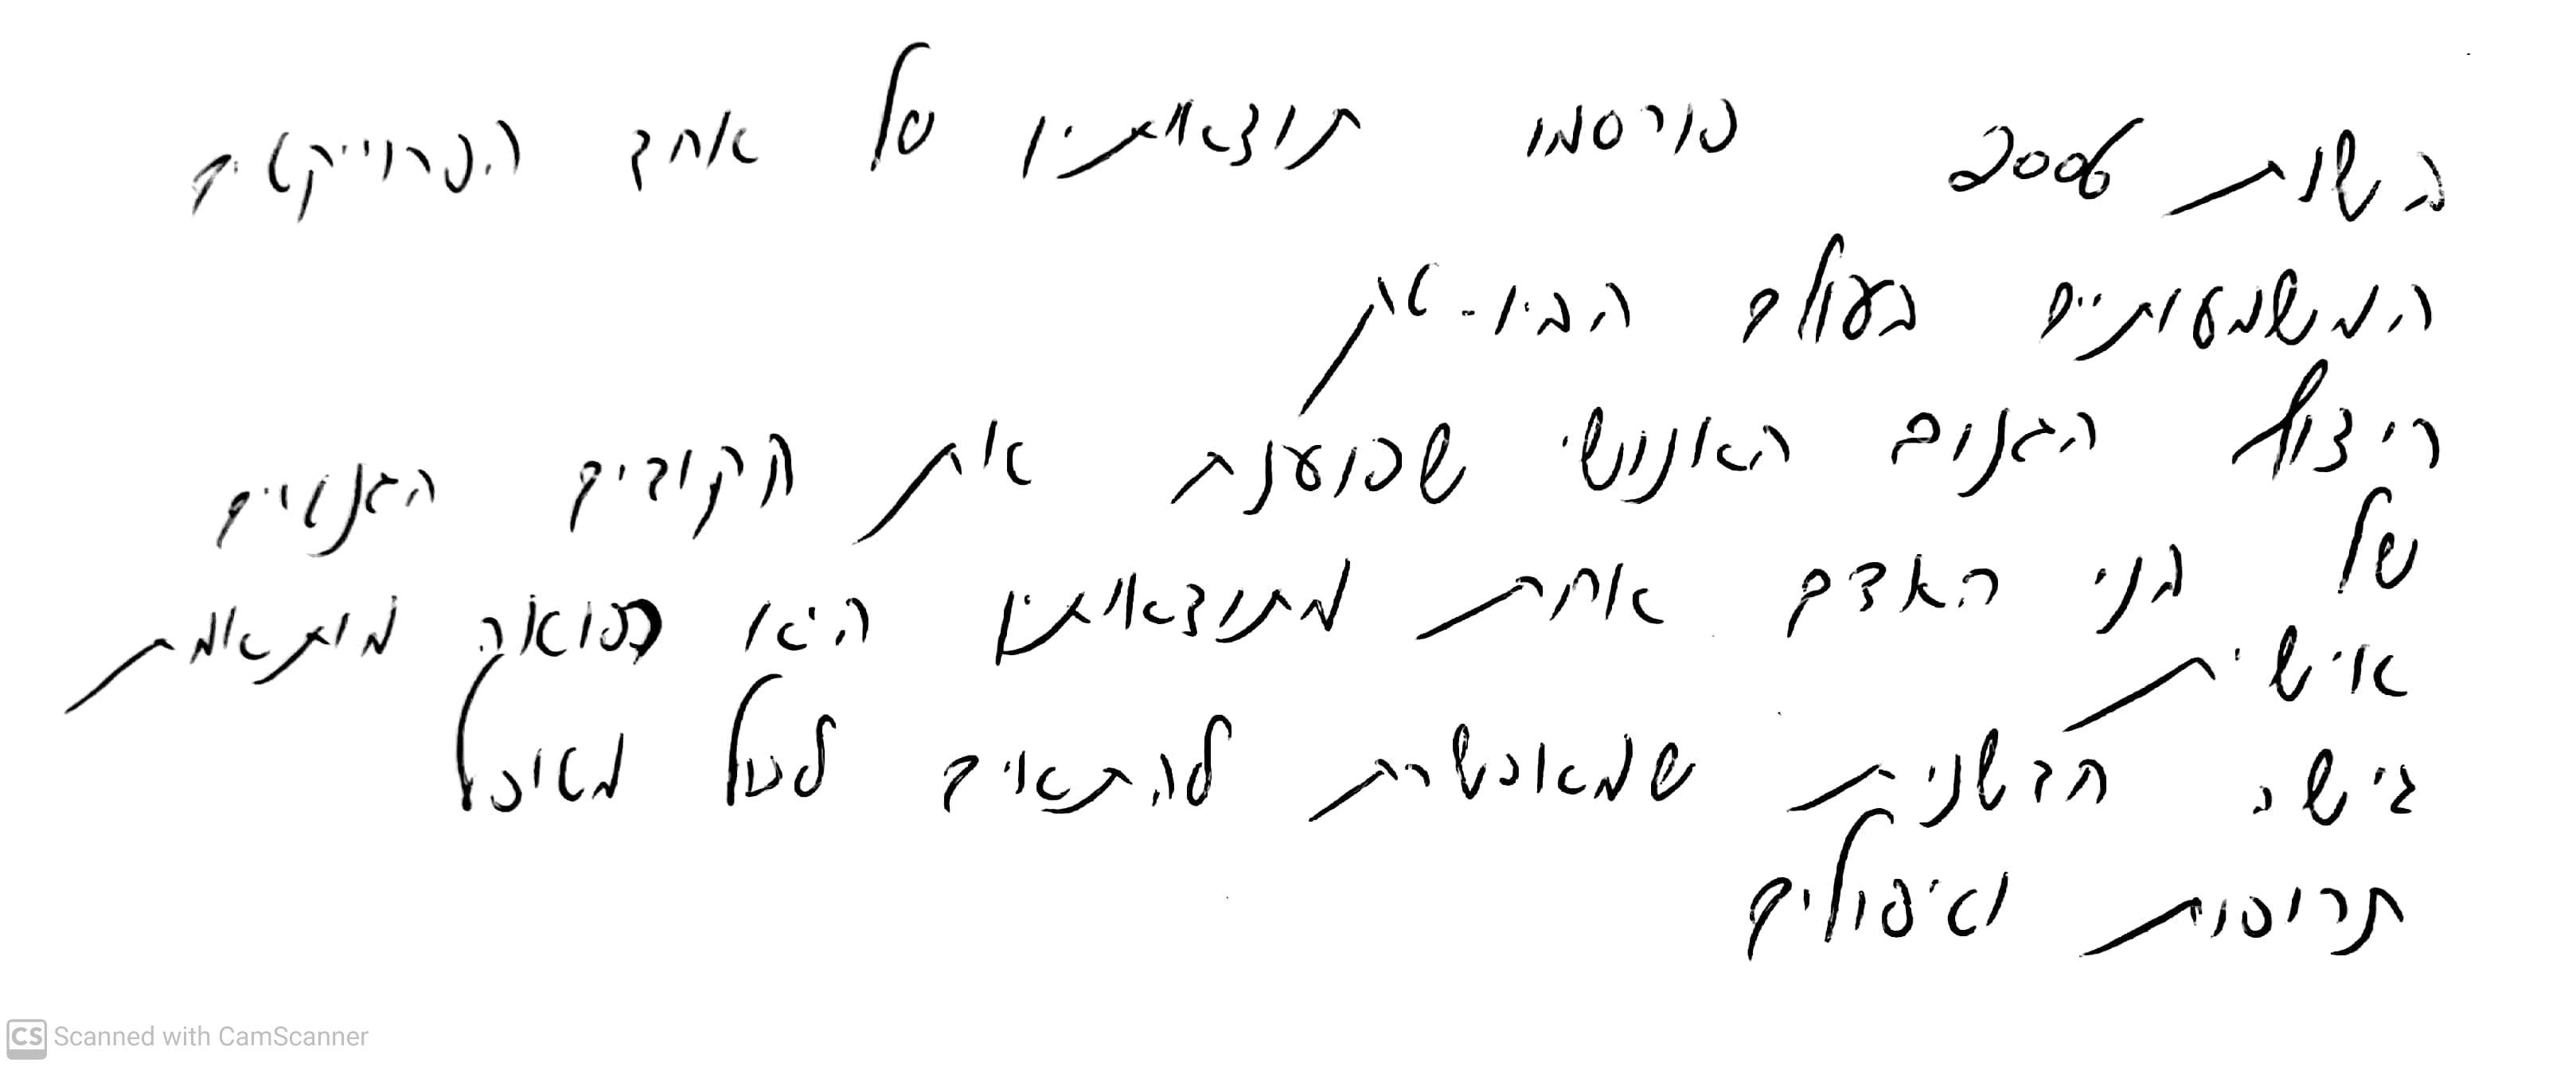 בשנת 2006 פורסמו תוצאותיו של אחד הפרוייקטים
המשמעותיים בעולם הביו-טק
ריצוף הגנום האנושי שפוענח את הקודים הגנטיים
של בני האדם אחת מתוצאותיו היא רפואה מותאמת
אישית
גישה חדשנית שמאפשרת להתאים לכל מטופל
תרופות וטיפולים
CS Scanned with CamScanner